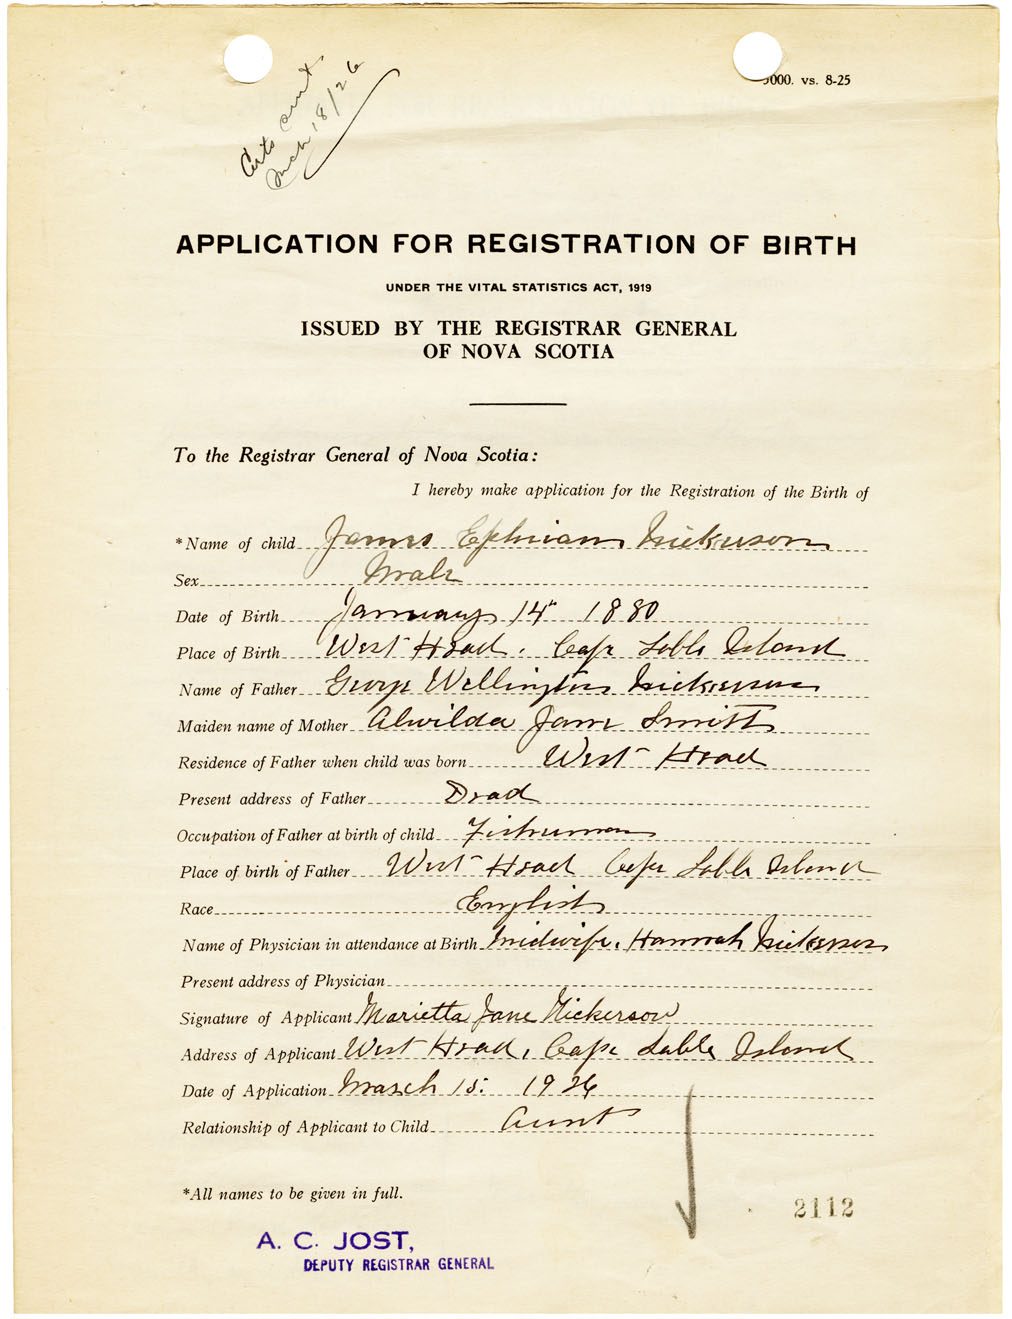 Certs sent
Mch 18/26
5000. vs. 8-25
APPLICATION FOR REGISTRATION OF BIRTH
UNDER THE VITAL STATISTICS ACT, 1919
ISSUED BY THE REGISTRAR GENERAL
OF NOVA SCOTIA
To the Registrar General of Nova Scotia:
I hereby make application for the Registration of the Birth of
*Name of child James Ephriam Nickerson
Sex Male
Date of Birth January 14" 1880
Place of Birth West Head, Cape Sable Island
Name of Father George Wellington Nickerson
Maiden name of Mother Alwilda Jane Smith
Residence of Father when child was born West Head
Present address of Father Dead
Occupation of Father at birth of child Fisherman
Place of birth of Father West Head Cape Sable Island
Race English
Name of Physician in attendance at Birth Midwife, Hannah Nickerson
Present address of Physician
Signature of Applicant Marietta Jane Nickerson
Address of Applicant West Head, Cape Sable Island
Date of Application March 15. 1926
Relationship of Applicant to Child Aunt
*All names to be given in full.
2112
A. C. JOST,
DEPUTY REGISTRAR GENERAL